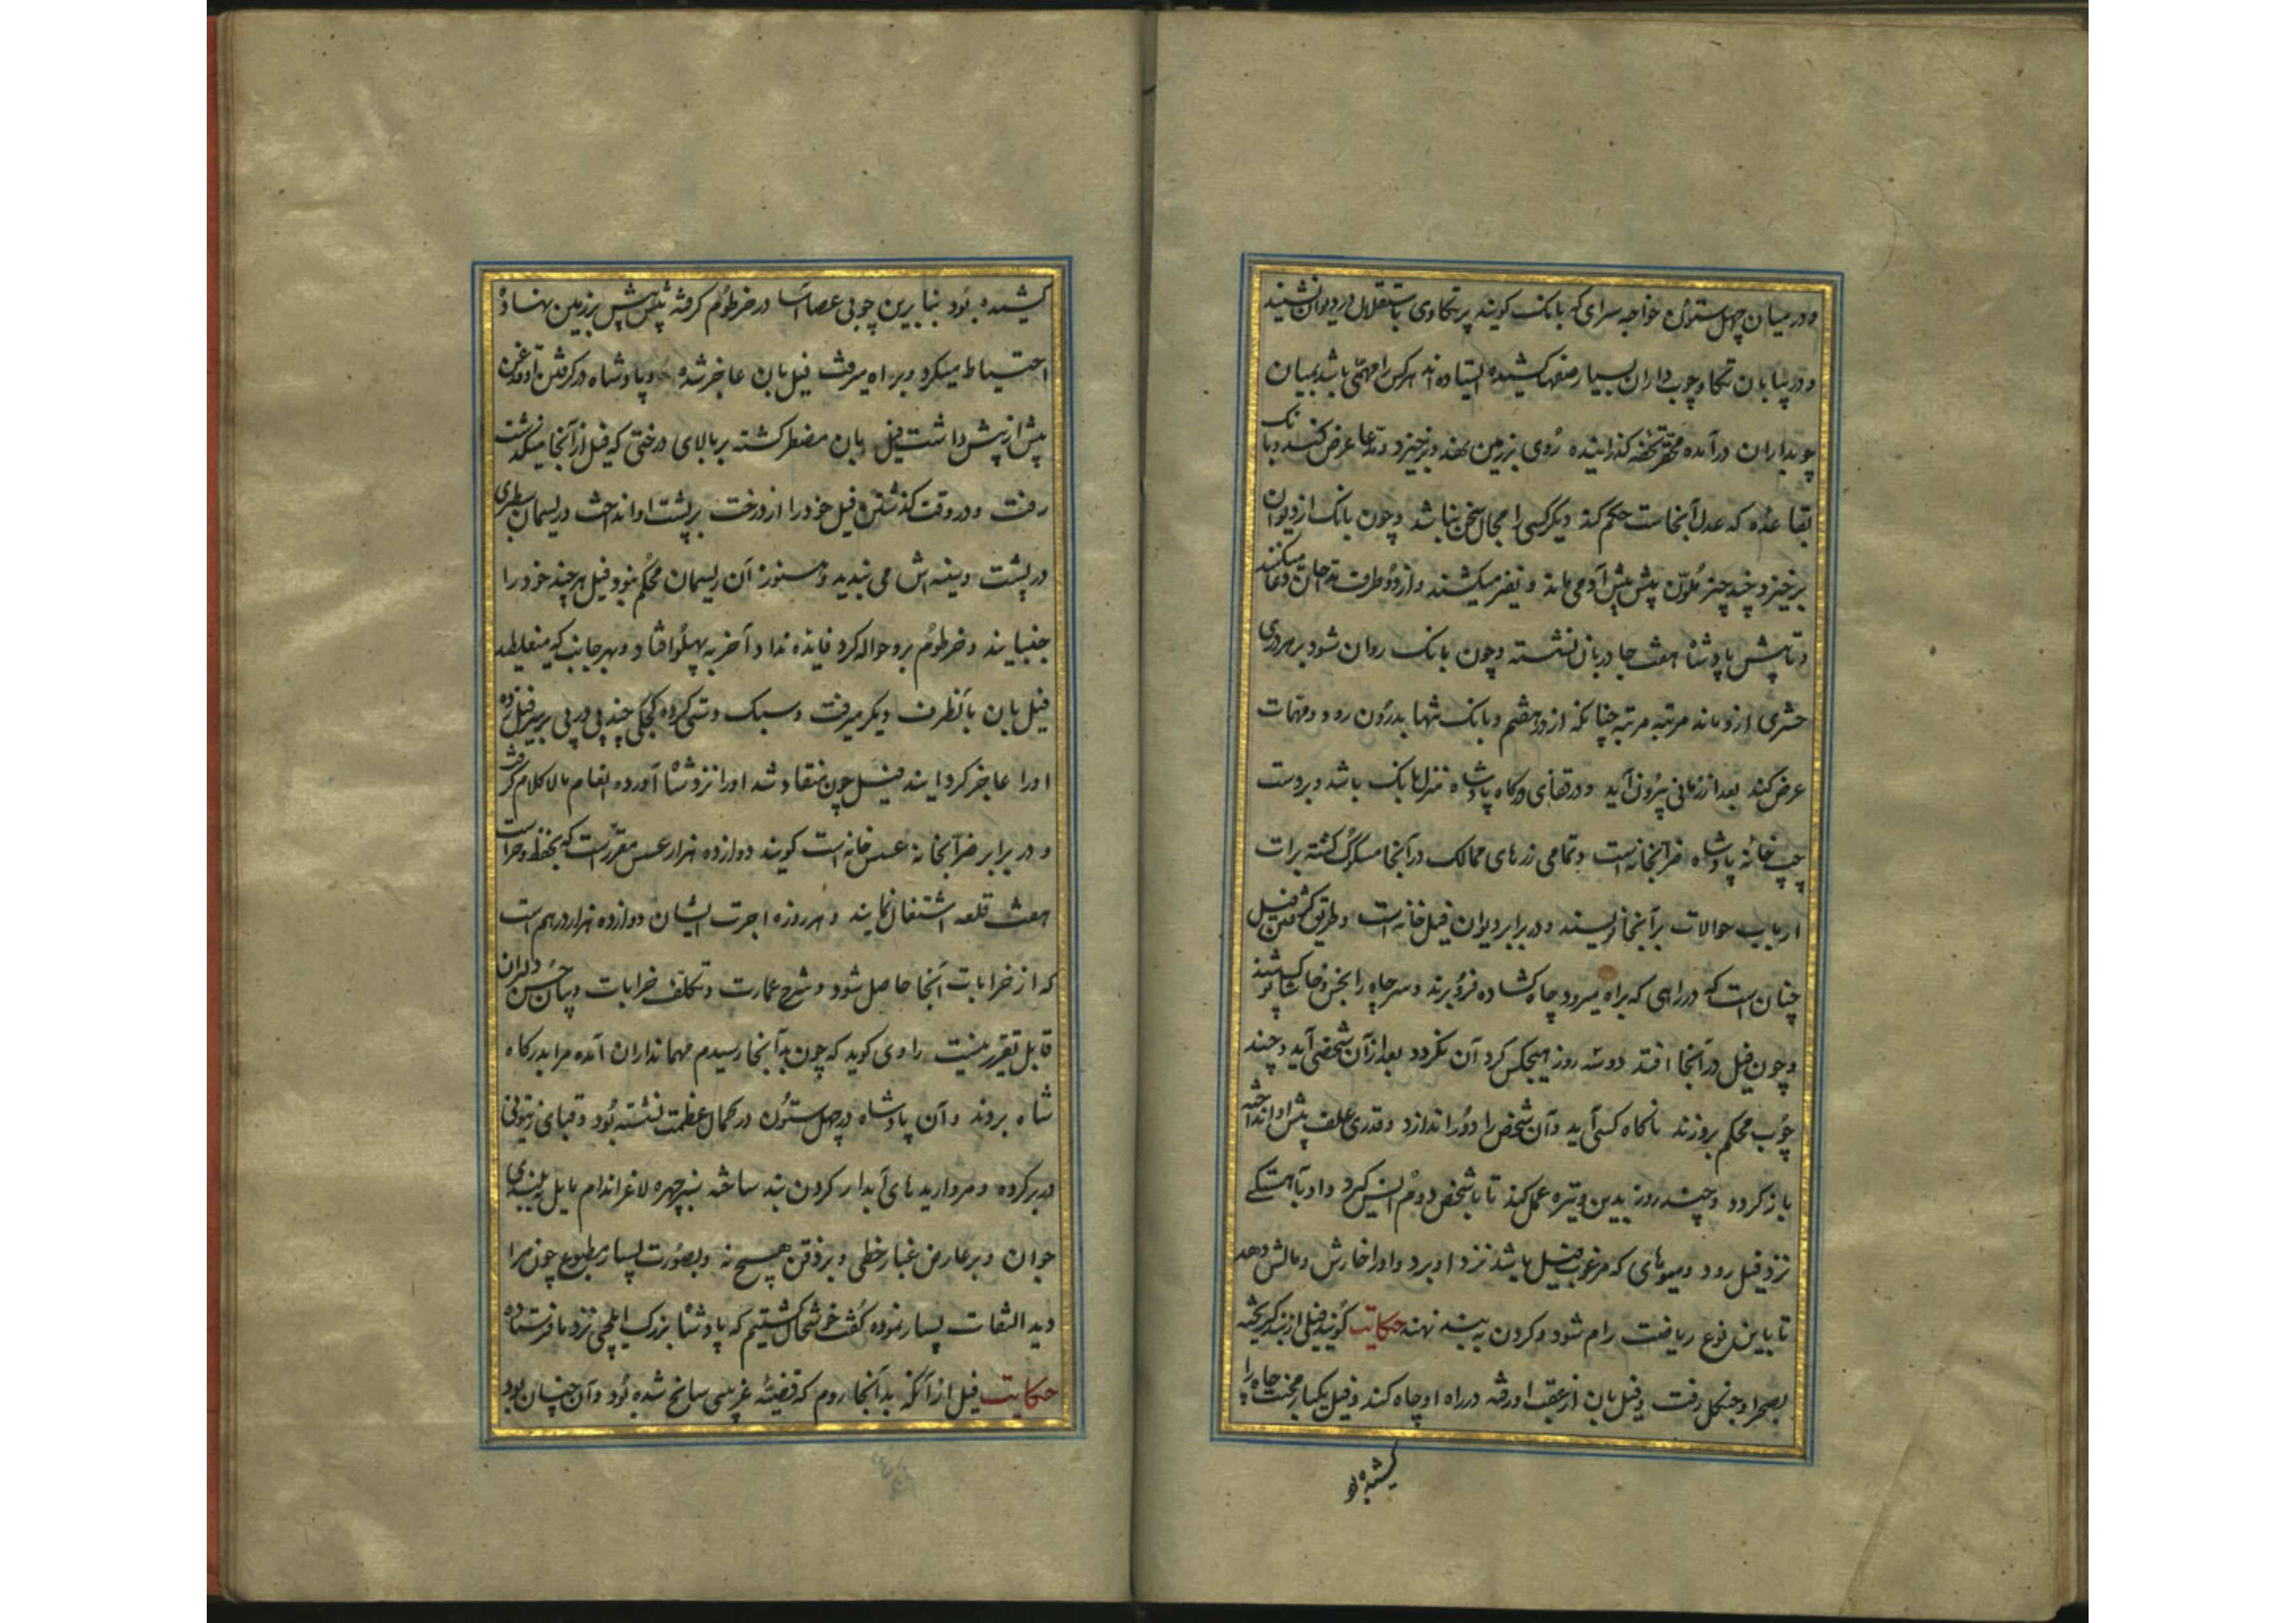 و در میان چهل ستون خواجه سرای که بانک کویند پر تکاوی باستقلال در دیوان نشیند
و در پایان تکاو چوب داران بسیار صفها کشیده ایستاده اند هرکس را مهمی باشد بمیان
چوبداران درآمده محقر تحفه گذرانیده روی بر زمین نهد و برخیزد و مدعا عرض کند و بانک
بقاعده که عدل آنجاست حکم کند دیگر کسی را مجال سخن نباشد و چون بانک از دیوان
برخیزد چند چتر ملون پیش پیش او می برند و نفیر میکشند و از دو طرف مداحان دعا میکنند
و تا پیش پادشاه هفت جا دربان نشسته و چون بانک روان شود بر هر دری
حشری ازو ماند مرتبه مرتبه چنانکه از در هفتم بانک تنها بدرون رود و مهمات
عرض کند بعد از زمانی بیرون آید و در قفای درکاه پادشاه منزل بانک باشد و بر دست
چپ خانهٔ پادشاه ضرابخانه است و تمامی زرهای ممالک در آنجا مسکوک کشته برات
ارباب حوالات بر آنجا نویسند و در برابر دیوان فیل خانه است و طریق گرفتن فیل
چنان است که در راهی که براه میرود چاه کشاده فرو برند و سر چاه را بخس و خاشاک پوشند
و چون فیل در آنجا افتد دو سه روز هیچکس کرد آن نکردد بعد از آن شخصی آید و چند
چوب محکم برو زند ناکاه کسی آید و آن شخص را دور اندازد و قدری علف پیش او انداخته
باز کردد و چند روز بدین وتیره عمل کند تا با شخص دوم انس کیرد و او بآهستکی
نزد فیل رود و میوهای که مرغوب فیل باشد نزد او برد و او را خارش و مالش دهد
تا باین نوع ریاضت رام شود و کردن به بند نهد حکایت کویند فیلی از بند کریخته
بصحرا و جنکل رفت و فیل بان از عقب او رفته در راه او چاه کند و فیل یکبار محنت چاه را
کشیده بو
کشیده بود بنابرین چوبی عصا آسا در خرطوم کرفته پیش پیش بر زمین نهاده
احتیاط میکرد و براه میرفت فیل بان عاجز شده و پادشاه در کرفتن او قدغن
پیش از پیش داشت فیل بان مضطر کشته بر بالای درختی که فیل از آنجا میکذشت
رفت و در وقت کذشتن فیل خود را از درخت بر پشت او انداخت و ریسمان سطبری
در پشت و سینه اش می بندید و هنوز آن ریسمان محکم بود فیل هر چند خود را
جنبانید و خرطوم برو حواله کرد فایده نداد آخر به پهلو افتاد و بهر جانب که میغلطید
فیل بان بآنطرف دیکر میرفت و سبک دستی کرده کجکی چند پی در پی بر سر فیل زده
او را عاجز کردانید فیل چون منقاد شد او را نزد شاه آورده انعام مالاکلام کرفت
و در برابر ضرابخانه عسس خانه است کویند دوازده هزار عسس مقرر است که بحفظ و حراست
هفت قلعه اشتغال نمایند و هر روزه اجرت ایشان دوازده هزار درهم است
که از خرابات آنجا حاصل شود و شرح عمارت و تکلف خرابات و بیان حسن دلبران
قابل تقریر نیست راوی کوید که چون بدآنجا رسیدم مهمانداران آمده مرا بدرکاه
شاه بردند و آن پادشاه در چهل ستون در کمال عظمت نشسته بود و قبای زیتونی
در بر کرده و مرواریدهای آبدار کردن بند ساخته سبز چهره لاغر اندام مایل به بلندی
جوان و بر عارض غبار خطی و بر ذقن هیچ نه و بصورت بسیار مطبوع چون مرا
دید التفات بسیار نموده کفت خوشحال کشتیم که پادشاه بزرک ایلچی نزد ما فرستاده
حکایت قبل از آنکه بدآنجا روم که قضیهٔ غریبی سانح شده بود و آن چنان بود